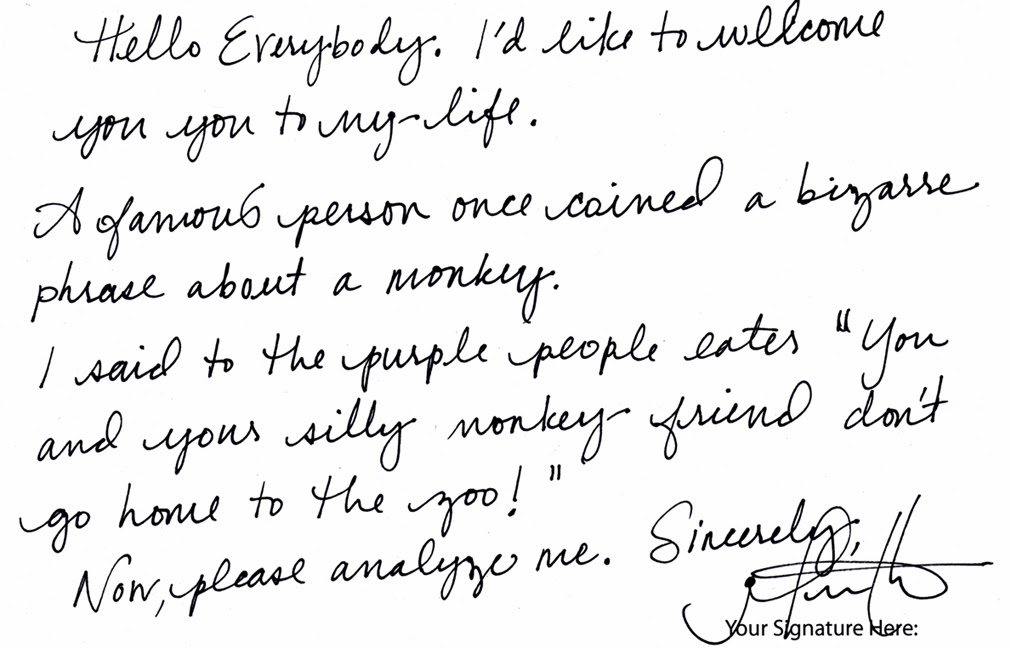 Hello Everybody. I'd like to welcome
you you to my life.
A famous person once coined a bizarre
phrase about a monkey.
I said to the purple people eater "You
and your silly monkey friend don't
go home to the zoo!"
Now, please analyze me. Sincerely,
Your Signature Here: